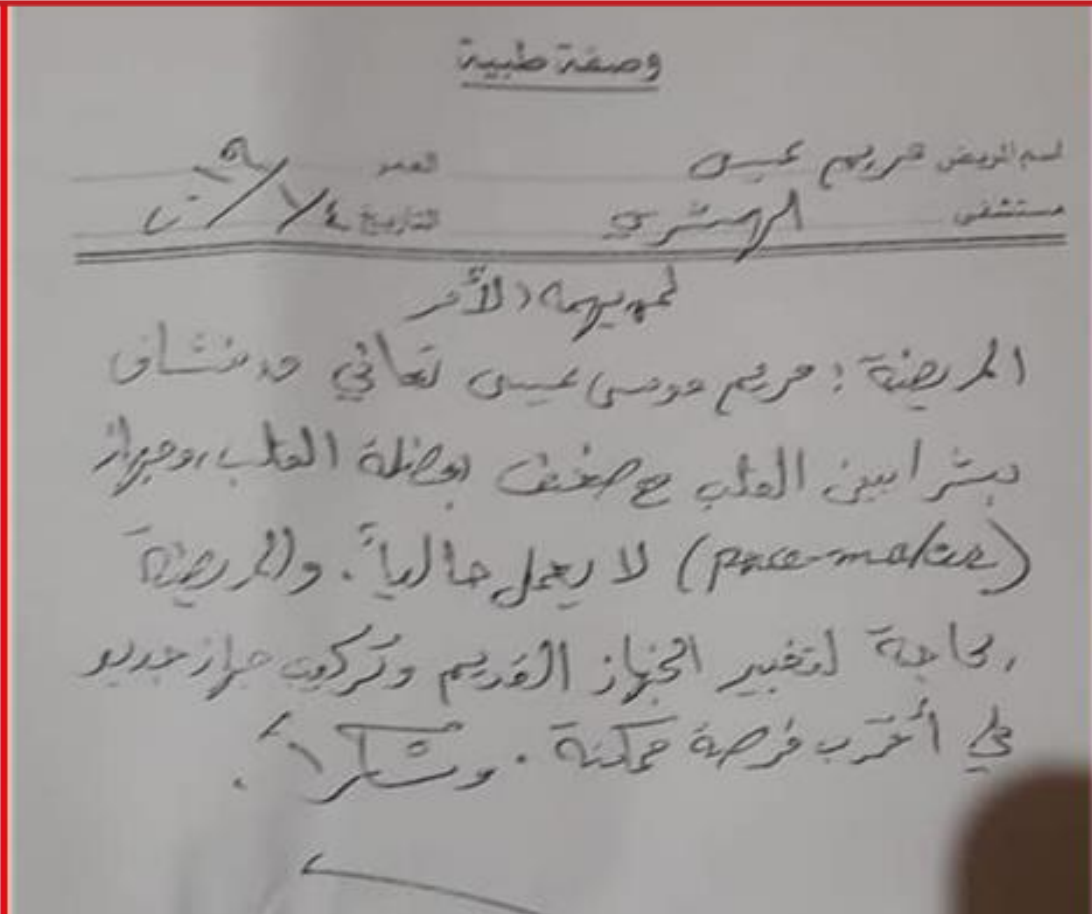 وصفة طبية
اسم المريض مريم عيسى العمر
مستشفى الهمشري التاريخ
لمن يهمه الأمر
المريضة : مريم موسى عيسى تعاني من نشاف
بشرايين القلب مع ضعف بعضلة القلب، وجهاز
(pace-maker) لا يعمل حالياً . والمريضة
بحاجة لتغيير الجهاز القديم وتركيب جهاز جديد
في أقرب فرصة ممكنة . وشكراً .